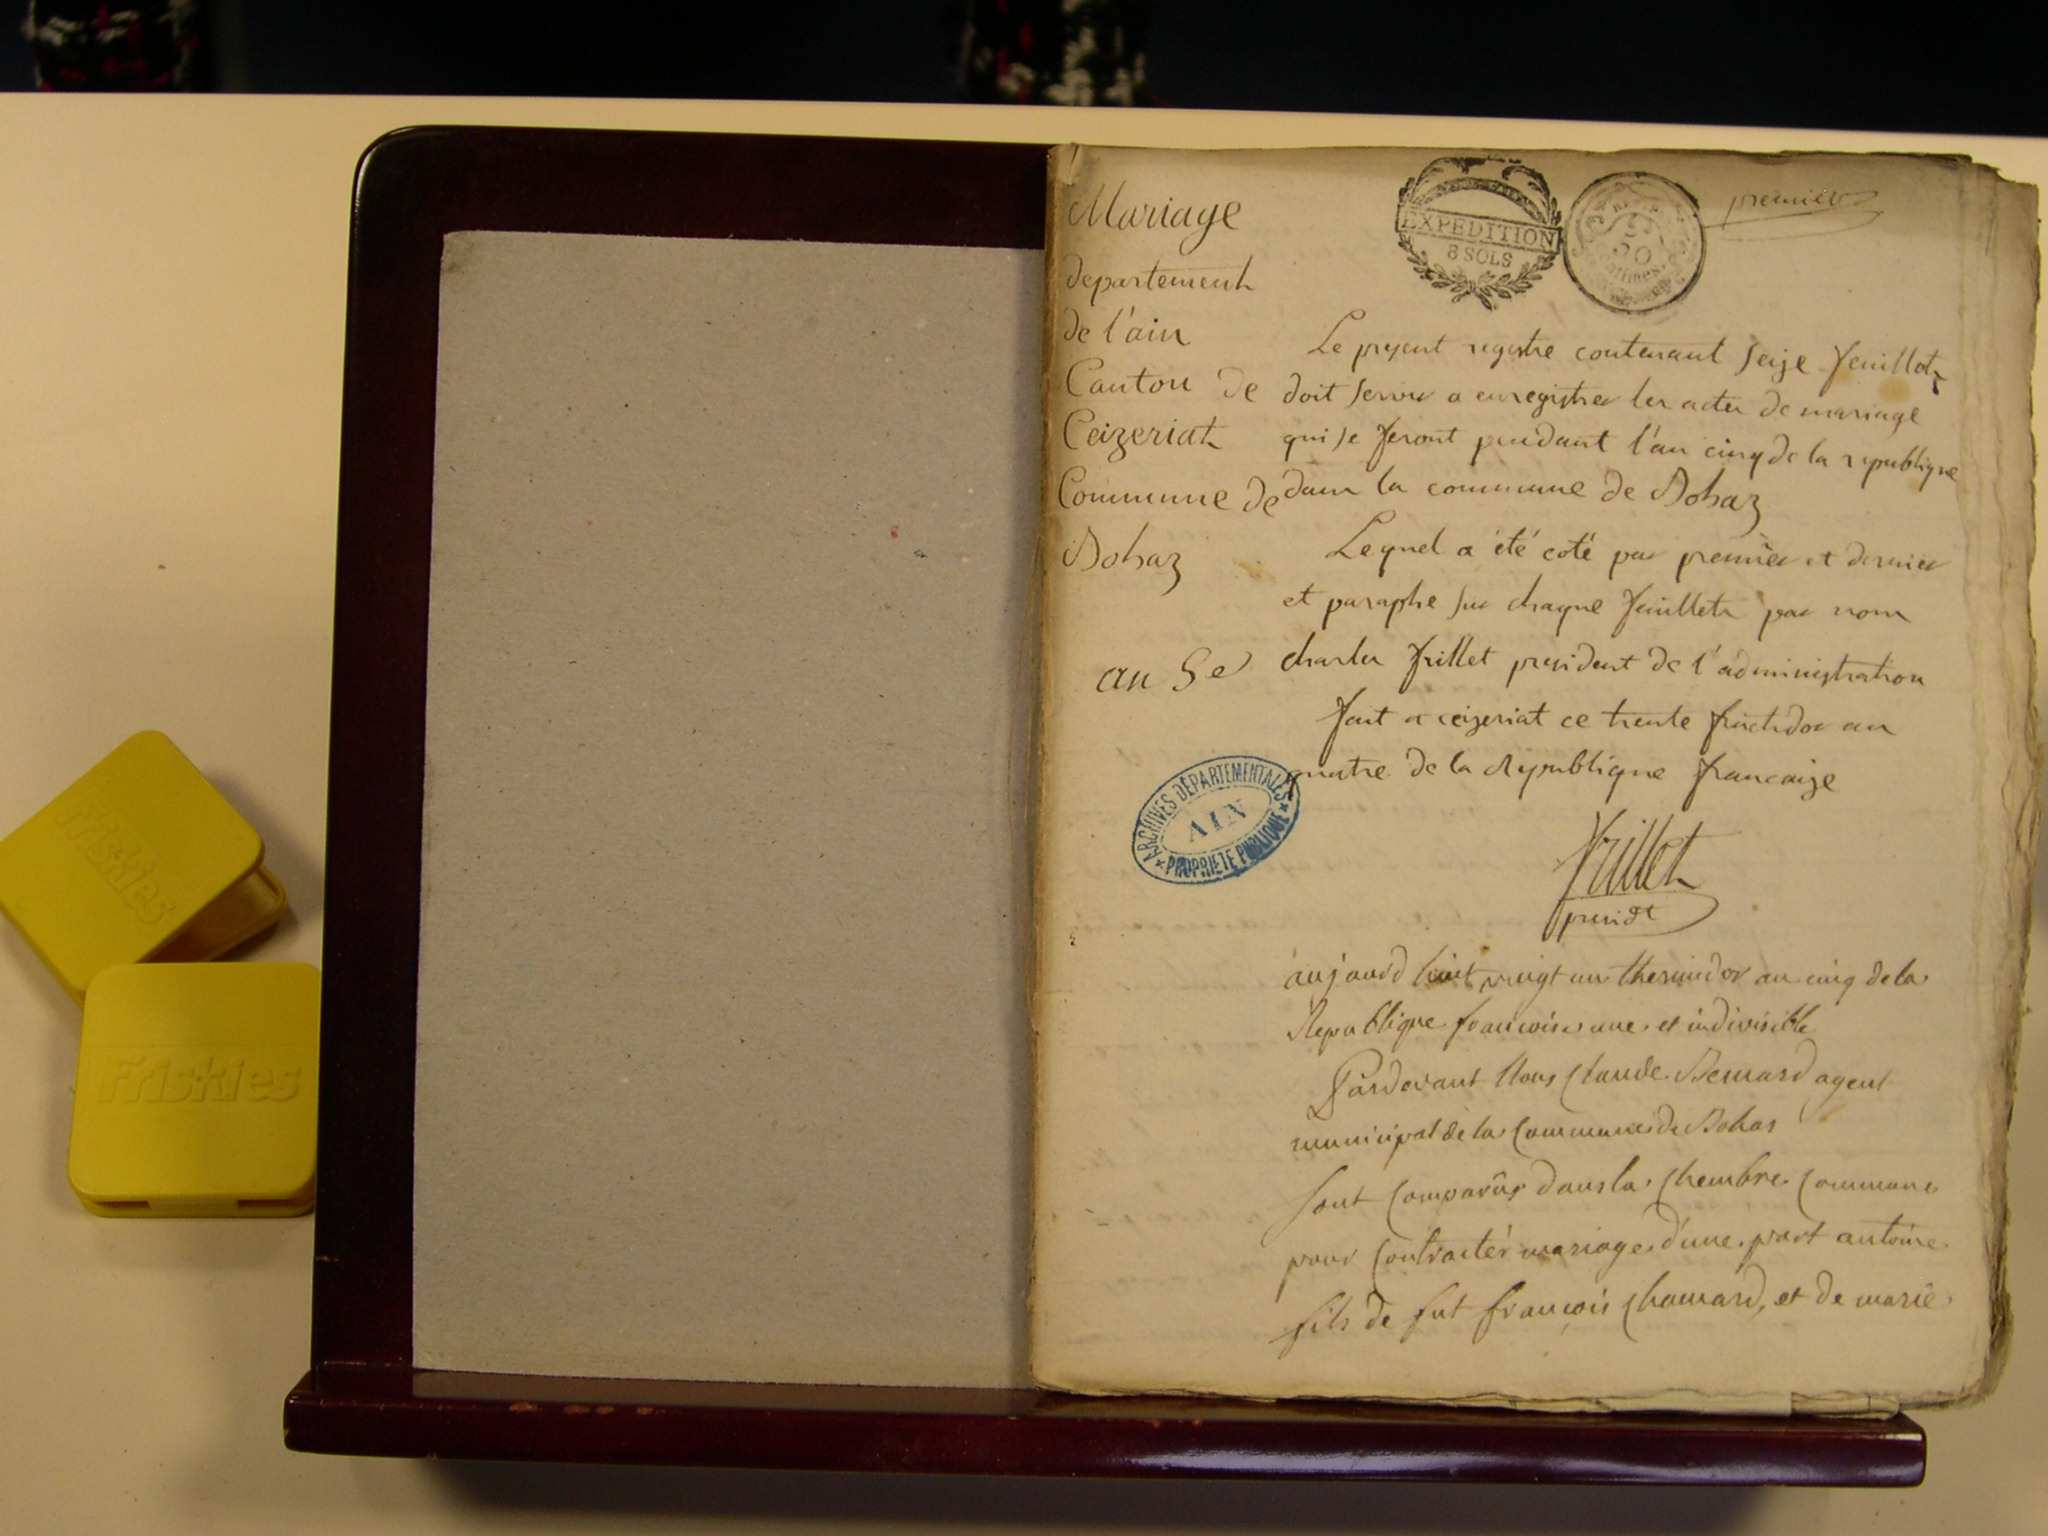 Mariage
departement
de l'ain
Canton de
Ceizeriat
Commune de
Bohaz
an 5e
EXPEDITION
8 SOLS
50
centimes
premier
Le present registre contenant seize feuillets
doit servir a enregistrer les actes de mariage
qui se feront pendant l'an cinq de la republique
dans la commune de Bohaz
Lequel a été coté par premièr et dernier
et paraphe sur chaque feuillets par nous
charles frillet president de l'administration
fait a ceizeriat ce trente fructidor an
quatre de la Republique francaize
frillet
presidt
ARCHIVES DÉPARTEMENTALES
AIN
PROPRIÉTÉ PUBLIQUE
aujourd huit vingt un thermidor an cinq de la
Republique francoise une et indivisible
Pardevant Nous Claude Bernard agent
municipal de la Commune de Bohas
sont Comparûs dans la Chembre Commune
pour Contractér mariage d'une part antoine
fils de fut françois Chanard, et de marie
friskies
friskies